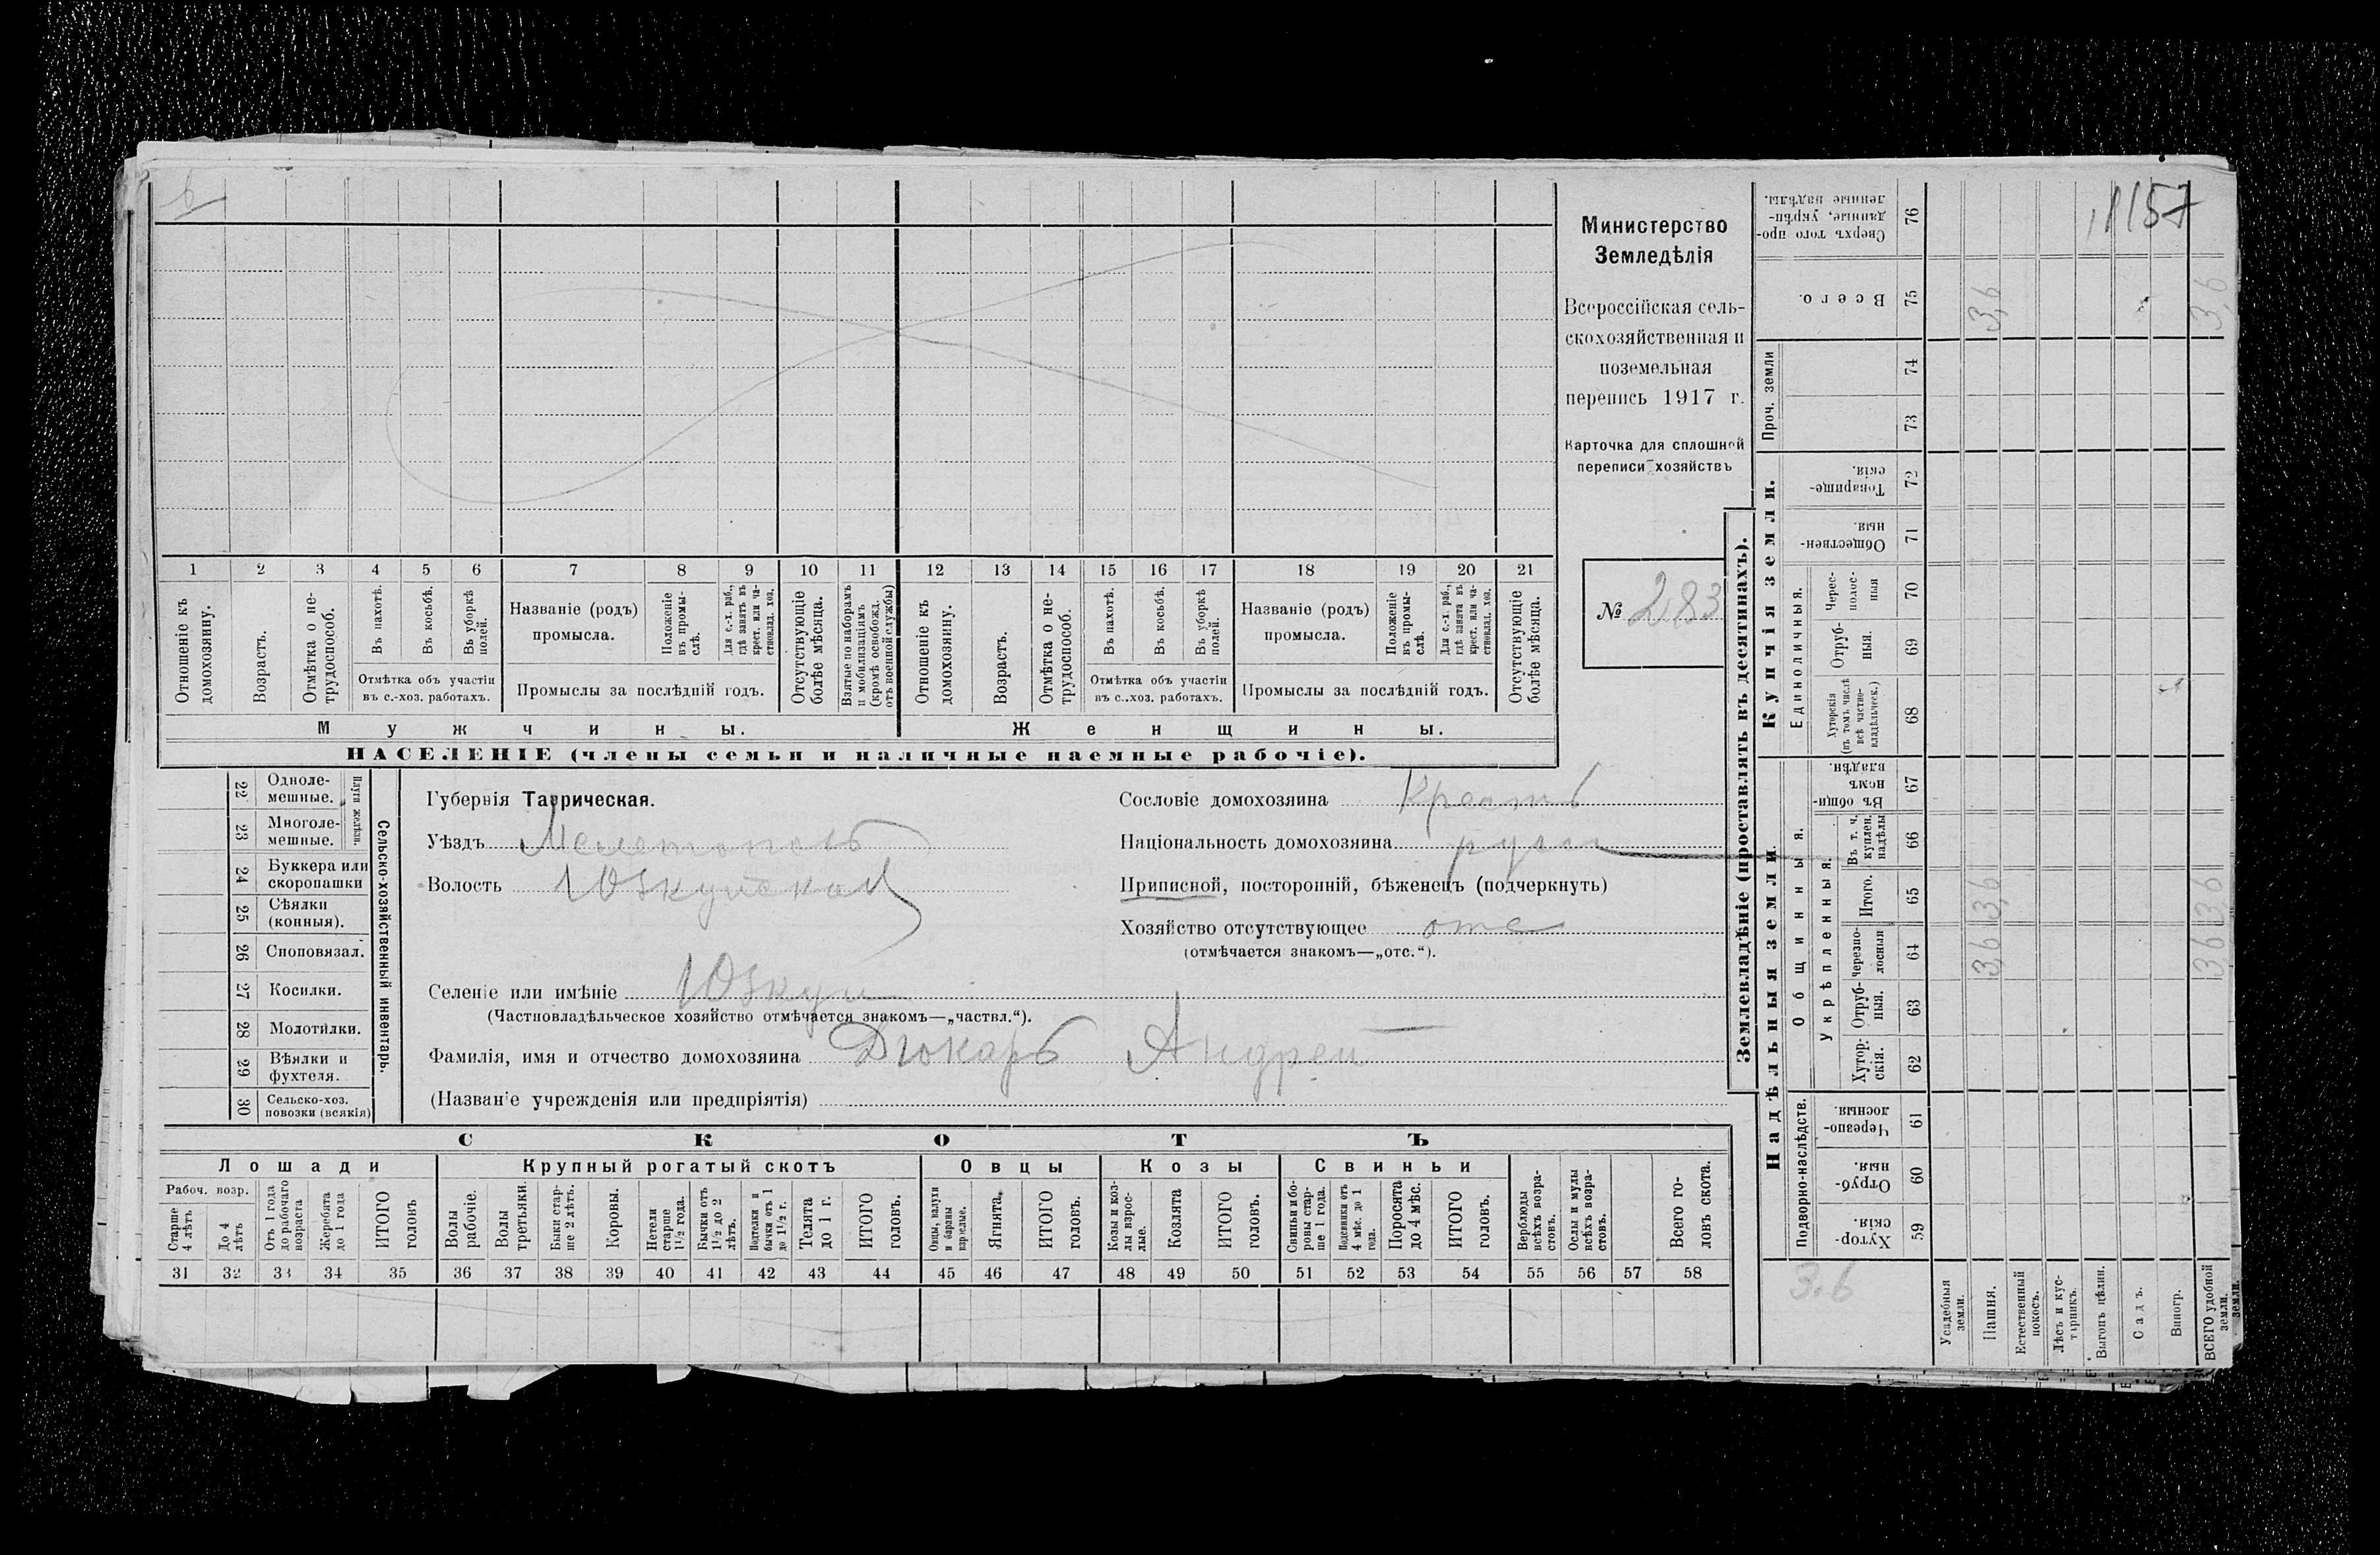 1157
Министерство
Земледѣлія
Всероссійская сель-
скохозяйственная и
поземельная
перепись 1917 г.
Карточка для сплошной
переписи хозяйствъ
№ 283
1 2 3 4 5 6 7 8 9 10 11 12 13 14 15 16 17 18 19 20 21
Отношеніе къ домохозяину.
Возрастъ.
Отмѣтка о не-трудоспособ.
Въ пахотѣ.
Въ косьбѣ.
Въ уборкѣ полей.
Отмѣтка объ участіи
въ с.-хоз. работахъ.
Названіе (родъ)
промысла.
Положеніе въ промы-слѣ.
Для с.-х. раб., гдѣ занятъ въ крест. или ча-стновлад. хоз.
Промыслы за послѣдній годъ.
Отсутствующіе болѣе мѣсяца.
Взятые по наборамъ и мобилизаціямъ (кромѣ освобожд. отъ военной службы)
Отношеніе къ домохозяину.
Возрастъ.
Отмѣтка о не-трудоспособ.
Въ пахотѣ.
Въ косьбѣ.
Въ уборкѣ полей.
Отмѣтка объ участіи
въ с.-хоз. работахъ.
Названіе (родъ)
промысла.
Положеніе въ промы-слѣ.
Для с.-х. раб., гдѣ занята въ крест. или ча-стновлад. хоз.
Промыслы за послѣдній годъ.
Отсутствующіе болѣе мѣсяца.
Мужчины.
Женщины.
НАСЕЛЕНІЕ (члены семьи и наличные наемные рабочіе).
22 Одноле-мешные.
23 Многоле-мешные.
Плуги желѣзн.
24 Буккера или скоропашки
25 Сѣялки (конныя).
26 Сноповязал.
27 Косилки.
28 Молотилки.
29 Вѣялки и фухтеля.
30 Сельско-хоз. повозки (всякія)
Сельско-хозяйственный инвентарь.
Губернія Таврическая.
Уѣздъ Мелетополь
Волость Юзкуйская
Селеніе или имѣніе Юзкуи
(Частновладѣльческое хозяйство отмѣчается знакомъ—„частвл.“).
Фамилія, имя и отчество домохозяина Дюкарь Андреи
(Названіе учрежденія или предпріятія)
Сословіе домохозяина Крестъ
Національность домохозяина русск
Приписной, посторонній, бѣженецъ (подчеркнуть)
Хозяйство отсутствующее отс
(отмѣчается знакомъ—„отс.“).
СКОТЪ
Лошади
Крупный рогатый скотъ
Овцы
Козы
Свиньи
Рабоч. возр.
Старше 4 лѣтъ
До 4 лѣтъ
Отъ 1 года до рабочаго возраста
Жеребята до 1 года
ИТОГО головъ
Волы рабочіе.
Волы третьяки.
Быки стар-ше 2 лѣтъ.
Коровы.
Нетели старше 1½ года.
Бычки отъ 1½ до 2 лѣтъ.
Подтелки и бычки отъ 1 до 1½ г.
Телята до 1 г.
ИТОГО головъ.
Овцы, валухи и бараны взрослые.
Ягнята.
ИТОГО головъ.
Козы и коз-лы взрос-лые.
Козлята
ИТОГО головъ.
Свиньи и бо-ровы стар-ше 1 года.
Подсвинки отъ 4 мѣс. до 1 года.
Поросята до 4 мѣс.
ИТОГО головъ.
Верблюды всѣхъ возра-стовъ.
Ослы и мулы всѣхъ возра-стовъ.
Всего го-ловъ скота.
31 32 33 34 35 36 37 38 39 40 41 42 43 44 45 46 47 48 49 50 51 52 53 54 55 56 57 58
Землевладѣніе (проставлять въ десятинахъ).
Надѣльныя земли
Купчія земли.
Проч. земли
Подворно-наслѣдств.
Общинныя.
Укрѣпленныя.
Единоличныя.
Хутор-скія. 59
Отруб-ныя. 60
Черезпо-лосныя. 61
Хутор-скія. 62
Отруб-ныя. 63
Черезпо-лосныя 64
Итого. 65
Въ т. ч. куплен. надѣлы 66
Въ общи-номъ владѣн. 67
Хуторскія (въ томъ числѣ всѣ частно-владѣльческ.) 68
Отруб-ныя. 69
Черес-полос-ныя 70
Обществен-ныя. 71
Товарище-скія. 72
73
74
Всего. 75
Сверхъ того про-данные, укрѣп-ленные надѣлы. 76
3.6
Усадебныя земли.
Пашня. 3,6 3,6 3,6
Естественный покосъ.
Лѣсъ и кус-тарникъ.
Выгонъ цѣлин.
Садъ.
Виногр.
ВСЕГО удобной земли. 3,6 3,6 3,6